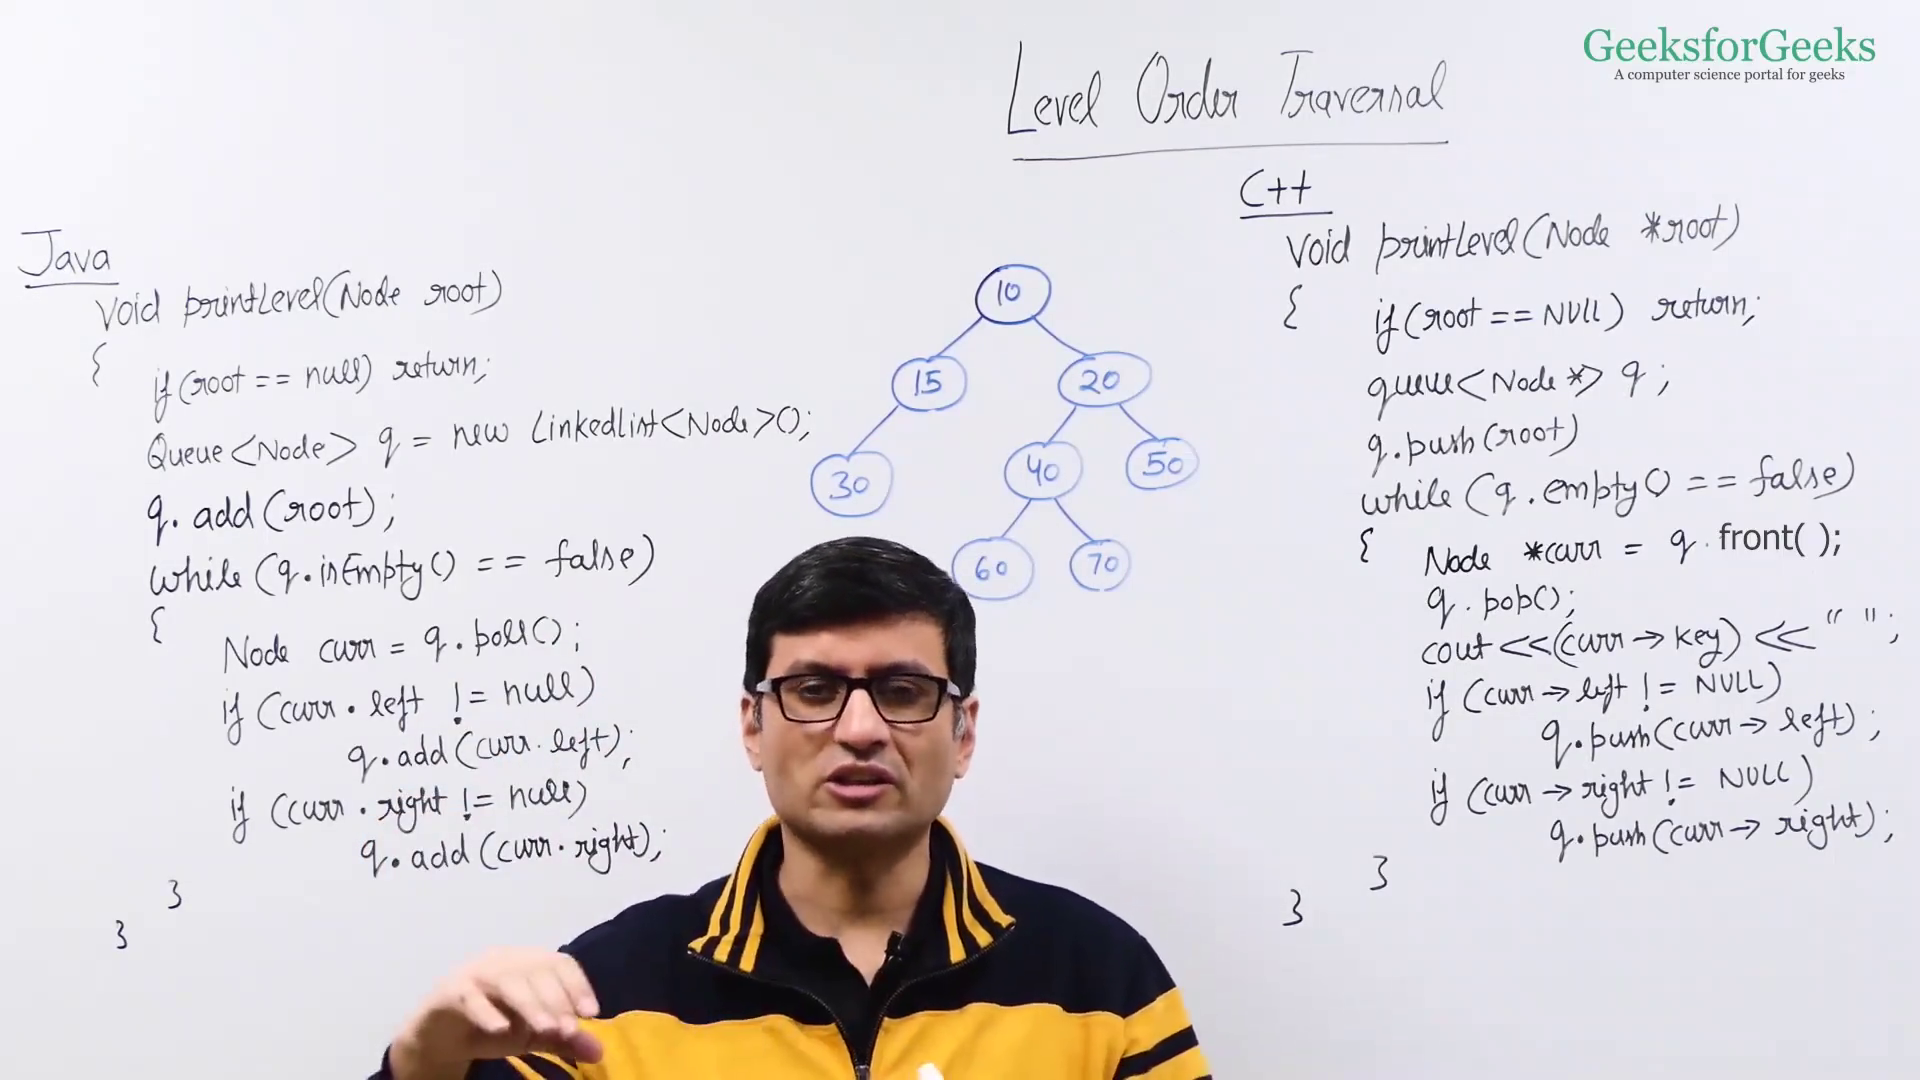 GeeksforGeeks
A computer science portal for geeks
Level Order Traversal
Java
void printLevel(Node root)
{
if(root == null) return;
Queue<Node> q = new LinkedList<Node>();
q. add(root);
while (q.isEmpty() == false)
{
Node curr = q. poll();
if (curr. left != null)
q.add(curr.left);
if (curr. right != null)
q.add(curr.right);
}
}
10
15 20
30 40 50
60 70
C++
void printLevel(Node *root)
{
if(root == NULL) return;
queue<Node *> q ;
q.push(root)
while (q.empty() == false)
{
Node *curr = q . front( );
q.pop();
cout <<(curr→key) << " ";
if (curr→left != NULL)
q.push(curr→left);
if (curr→right != NULL)
q.push(curr→right);
}
}